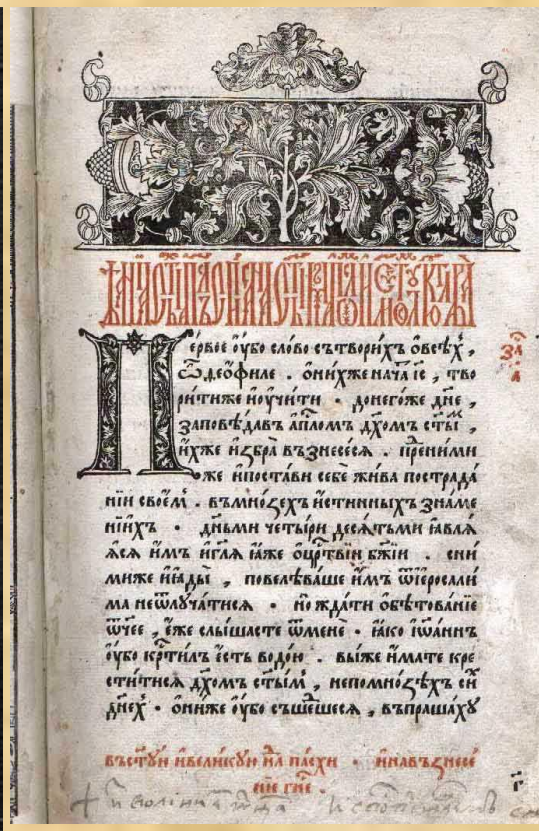 Первое ѹ҆бо сло́во сътвори́хъ ѡ҆всѣ́х ,
ѽѳеѡ́филе . ѡ҆ни́хже нача́ і҆с , тво
ри́тиже и҆ѹ҆чи́ти · донего́же дн҃е ,
заповѣ́давъ а҆пⷭ҇ломъ дх҃омъ ст҃ы́мъ ,
и҆́хже и҆збра̀ възнесе́ся . преⷣни́ми
же и҆поста́ви себѐ жи́ва пострада́
нїи свое́мъ . въмно́зехъ и҆́стинныхъ зна́ме
нїихъ · дн҃ьми четы́ри деся́тьми ꙗ҆вля́
яся и҆̀мъ и҆гл҃я ꙗ҆́же ѡ҆црⷭ҇твїи бж҃їи . сни́
миже и҆ꙗ҆ды̀ , повелѣ́ваше и҆̀мъ ѿі҆еросали́
ма неѿлꙋча́тися · но жда́ти ѡ҆бѣтова́нїе
ѿч҃ее , е҆́же слы́шасте ѿменѐ · ꙗ҆́ко і҆ѡа́ннъ
ѹ҆́бо крⷭ҇ти́лъ е҆́сть водо́ю . вы́же и҆́мате кре
сти́тися дх҃омъ ст҃ы́мъ , непомно́зѣхъ си́хъ
дне́х · ѡ҆ни́же ѹ҆́бо съше́дшеся , въпраша́хꙋ
въст҃ꙋ́ю и҆вели́кꙋю нⷣлю па́схи · и҆навъзнесе́
нїе гн҃е .